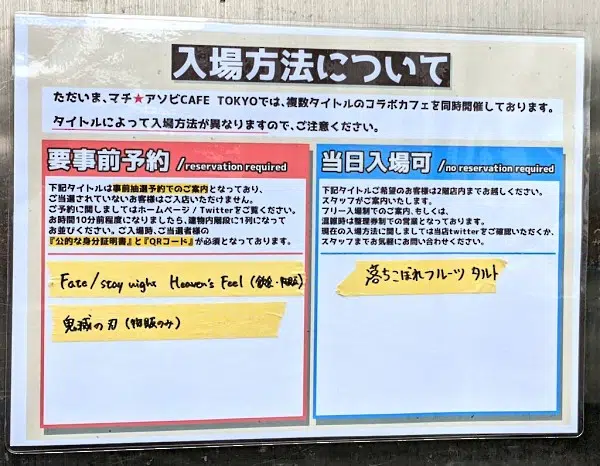 入場方法について
ただいま、マチ★アソビCAFE TOKYOでは、複数タイトルのコラボカフェを同時開催しております。
タイトルによって入場方法が異なりますので、ご注意ください。
要事前予約 /reservation required
下記タイトルは事前抽選予約でのご案内となっており、
ご当選されていないお客様はご入店いただけません。
ご予約に関しましてはホームページ/Twitterをご覧ください。
お時間10分前程度になりましたら、建物内階段に1列になって
お並びください。ご入場時、ご当選者様の
『公的な身分証明書』と『QRコード』が必須となっております。
Fate/stay night Heaven's Feel (飲食・物販)
鬼滅の刃 (物販のみ)
当日入場可 /no reservation required
下記タイトルご希望のお客様は2階店内までお越しください。
スタッフがご案内いたします。
フリー入場制でのご案内、もしくは、
混雑時は整理券制での営業となっております。
現在の入場方法に関しましては当店twitterをご確認いただくか、
スタッフまでお気軽にお問い合わせください。
落ちこぼれフルーツタルト